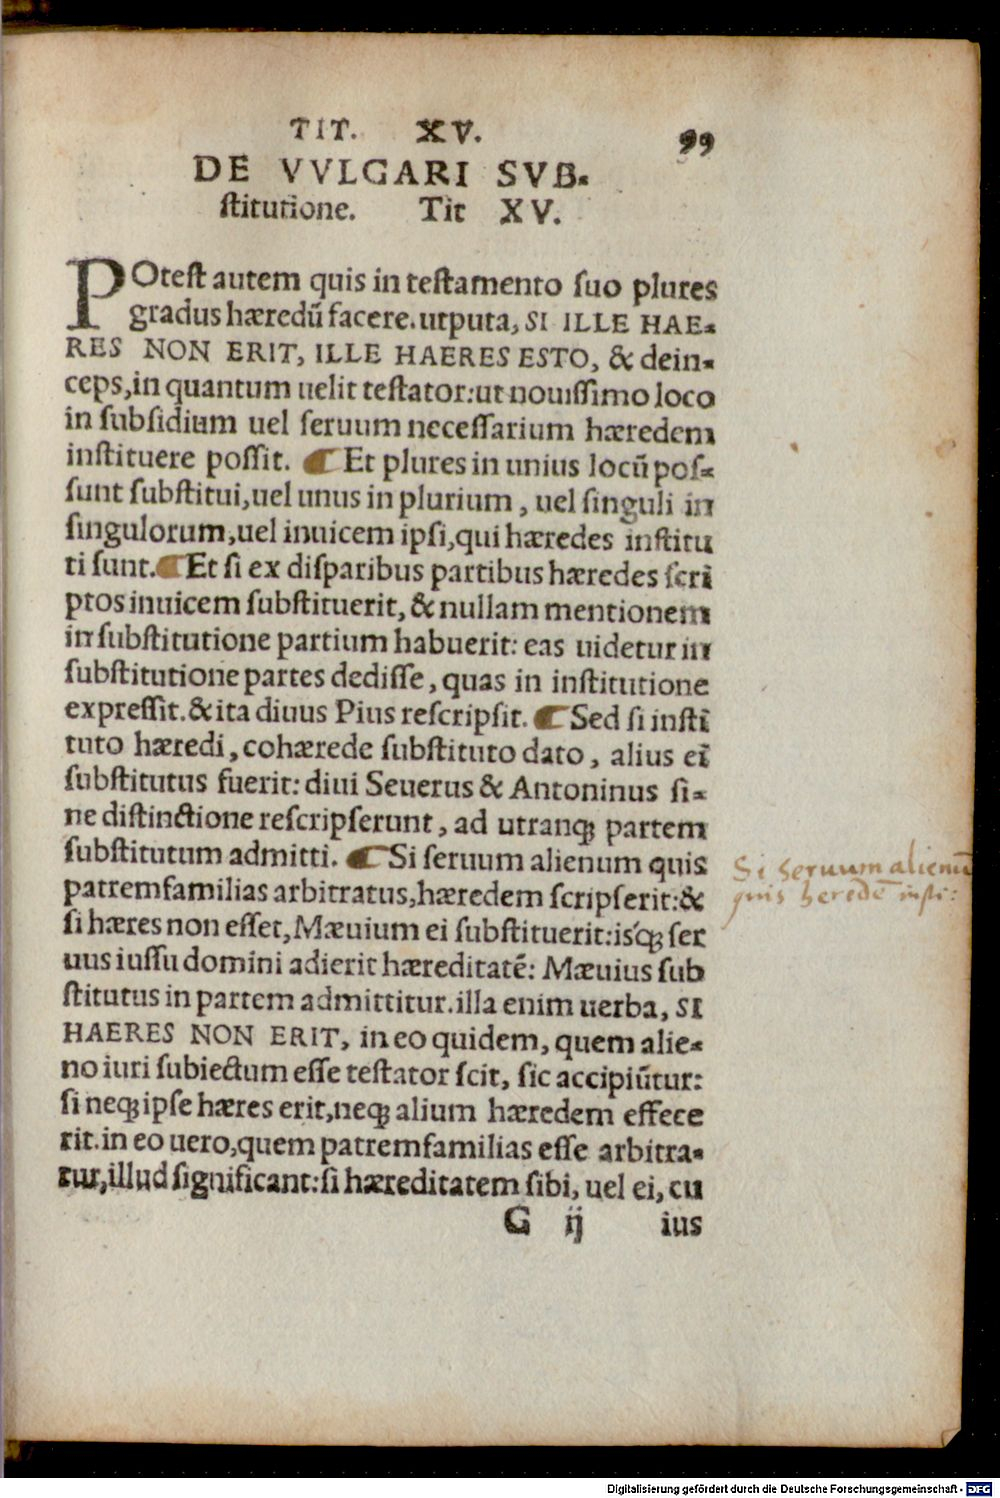 TIT. XV. 99
DE VVLGARI SVB-
ſtitutione. Tit XV.
POteſt autem quis in teſtamento ſuo plures
gradus hæredũ facere. utputa, SI ILLE HAE-
RES NON ERIT, ILLE HAERES ESTO, & dein-
ceps, in quantum uelit teſtator: ut nouiſſimo loco
in ſubſidium uel ſeruum neceſſarium hæredem
inſtituere poſſit. ☛ Et plures in unius locũ poſ-
ſunt ſubſtitui, uel unus in plurium, uel ſinguli in
ſingulorum, uel inuicem ipſi, qui hæredes inſtitu
ti ſunt. ☛ Et ſi ex diſparibus partibus hæredes ſcri
ptos inuicem ſubſtituerit, & nullam mentionem
in ſubſtitutione partium habuerit: eas uidetur in
ſubſtitutione partes dediſſe, quas in inſtitutione
expreſſit. & ita diuus Pius reſcripſit. ☛ Sed ſi inſti
tuto hæredi, cohærede ſubſtituto dato, alius ei
ſubſtitutus fuerit: diui Seuerus & Antoninus ſi-
ne diſtinctione reſcripſerunt, ad utranqꝫ partem
ſubſtitutum admitti. ☛ Si ſeruum alienum quis
patremfamilias arbitratus, hæredem ſcripſerit: &
ſi hæres non eſſet, Mæuium ei ſubſtituerit: iſqꝫ ſer
uus iuſſu domini adierit hæreditatẽ: Mæuius ſub
ſtitutus in partem admittitur. illa enim uerba, SI
HAERES NON ERIT, in eo quidem, quem alie-
no iuri ſubiectum eſſe teſtator ſcit, ſic accipiũtur:
ſi neqꝫ ipſe hæres erit, neqꝫ alium hæredem effece
rit. in eo uero, quem patremfamilias eſſe arbitra-
tur, illud ſignificant: ſi hæreditatem ſibi, uel ei, cu
G ij ius
Si seruum alienũ
quis heredẽ insti:
Digitalisierung gefördert durch die Deutsche Forschungsgemeinschaft - DFG